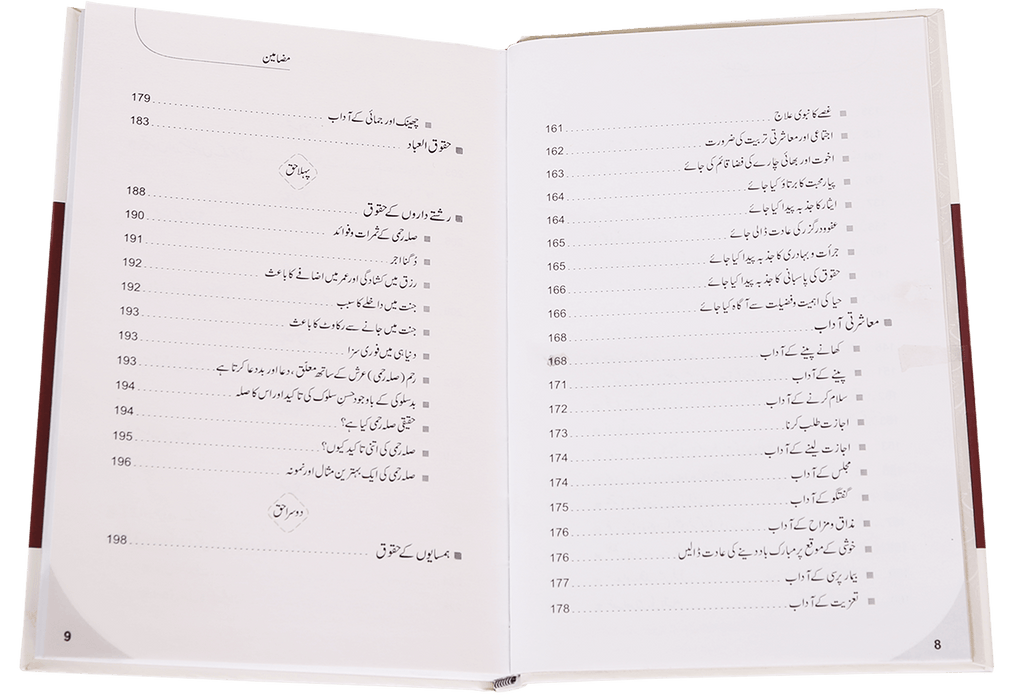 غصے کا نبوی علاج 161
اجتماعی اور معاشرتی تربیت کی ضرورت 162
اخوت اور بھائی چارے کی فضا قائم کی جائے 163
پیار محبت کا برتاؤ کیا جائے 164
ایثار کا جذبہ پیدا کیا جائے 164
عفو و درگزر کی عادت ڈالی جائے 165
جرأت و بہادری کا جذبہ پیدا کیا جائے 165
حقوق کی پاسبانی کا جذبہ پیدا کیا جائے 166
حیا کی اہمیت و فضیلت سے آگاہ کیا جائے 166
معاشرتی آداب 168
کھانے پینے کے آداب 168
پینے کے آداب 171
سلام کرنے کے آداب 172
اجازت طلب کرنا 173
اجازت لینے کے آداب 174
مجلس کے آداب 174
گفتگو کے آداب 175
مذاق و مزاح کے آداب 176
خوشی کے موقع پر مبارک باد دینے کی عادت ڈالیں 176
بیمار پرسی کے آداب 177
تعزیت کے آداب 178
8
مضامین
چھینک اور جمائی کے آداب 179
حقوق العباد 183
پہلا حق
رشتے داروں کے حقوق 188
صلہ رحمی کے ثمرات و فوائد 190
دُگنا اجر 191
رزق میں کشادگی اور عمر میں اضافے کا باعث 192
جنت میں داخلے کا سبب 192
جنت میں جانے سے رکاوٹ کا باعث 193
دنیا ہی میں فوری سزا 193
رحم (صلہ رحمی) عرش کے ساتھ معلّق، دعا اور بددعا کرتا ہے 193
بدسلوکی کے باوجود حسن سلوک کی تاکید اور اس کا صلہ 194
حقیقی صلہ رحمی کیا ہے؟ 194
صلہ رحمی کی اتنی تاکید کیوں؟ 195
صلہ رحمی کی ایک بہترین مثال اور نمونہ 196
دوسرا حق
ہمسایوں کے حقوق 198
9